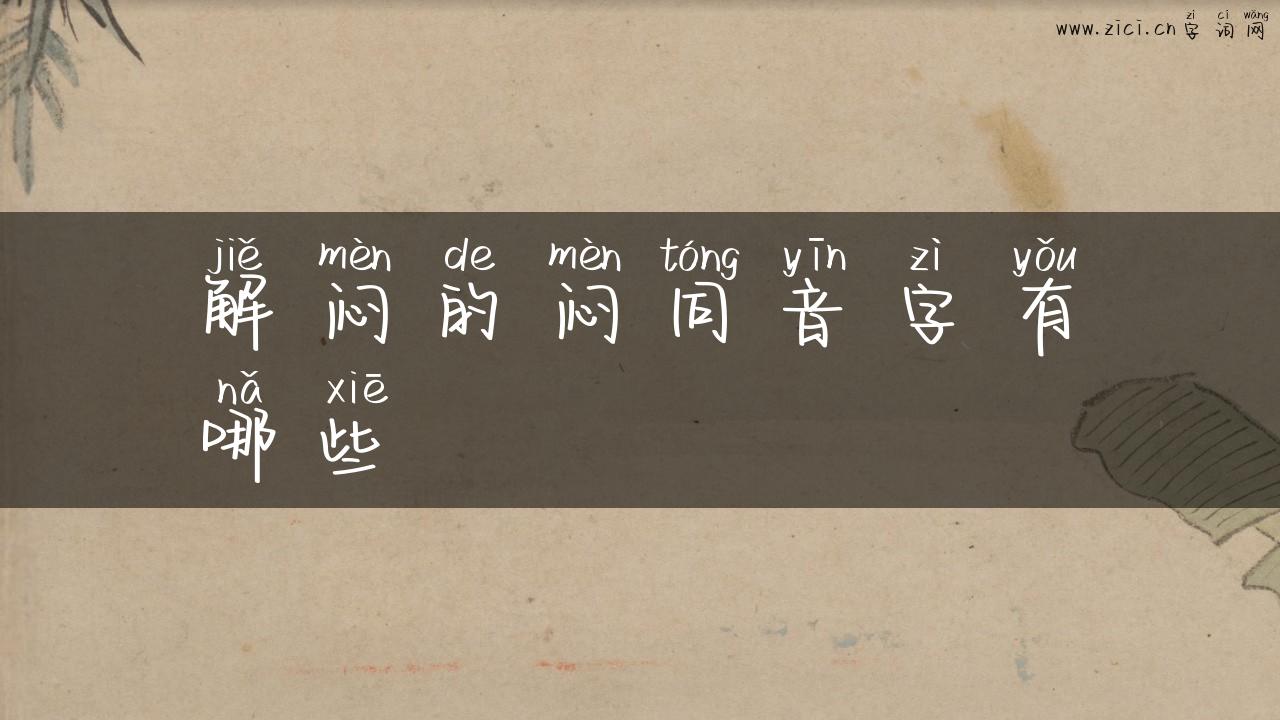 zì cí wǎng
www.zici.cn字词网
jiě mèn de mèn tóng yīn zì yǒu
解闷的闷同音字有
nǎ xiē
哪些